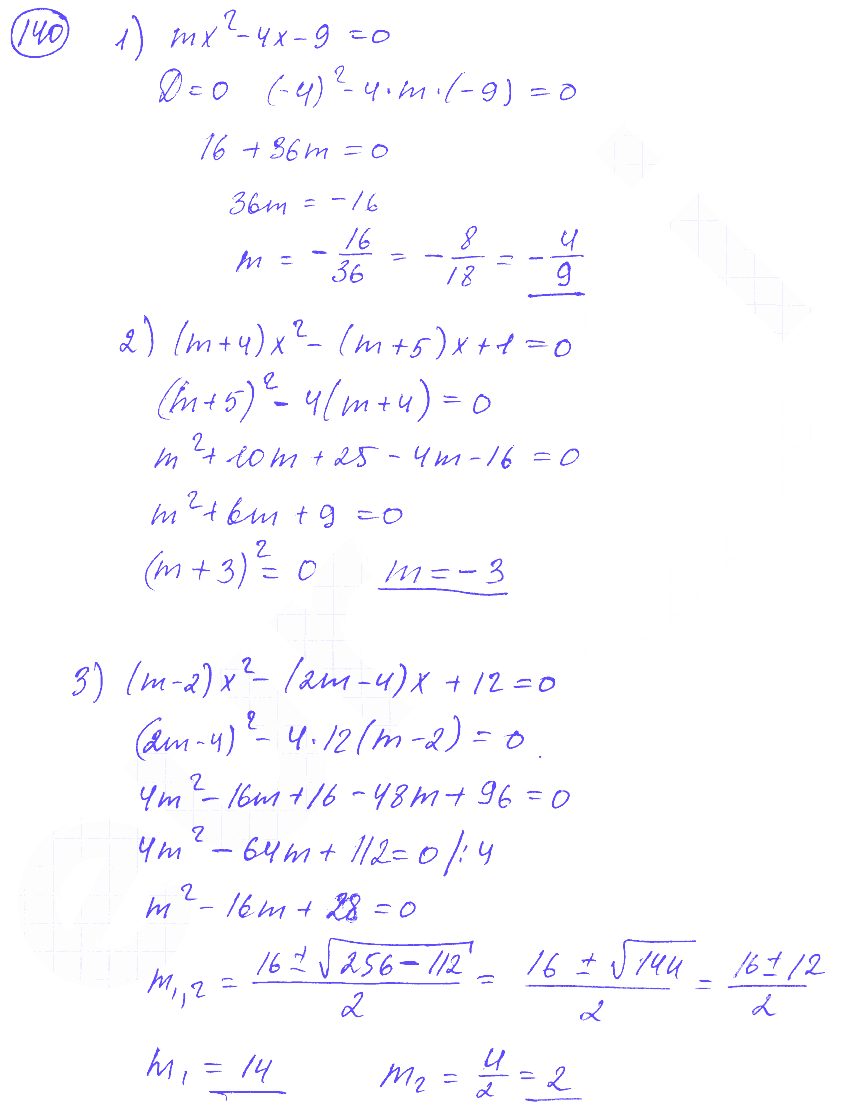 140 1) mx² - 4x - 9 = 0
D = 0 (-4)² - 4·m·(-9) = 0
16 + 36m = 0
36m = -16
m = -16/36 = -8/18 = -4/9
2) (m+4)x² - (m+5)x + 1 = 0
(m+5)² - 4(m+4) = 0
m² + 10m + 25 - 4m - 16 = 0
m² + 6m + 9 = 0
(m+3)² = 0 m = -3
3) (m-2)x² - (2m-4)x + 12 = 0
(2m-4)² - 4·12(m-2) = 0
4m² - 16m + 16 - 48m + 96 = 0
4m² - 64m + 112 = 0 /:4
m² - 16m + 28 = 0
m₁,₂ = (16 ± √(256 - 112))/2 = (16 ± √144)/2 = (16 ± 12)/2
m₁ = 14 m₂ = 4/2 = 2